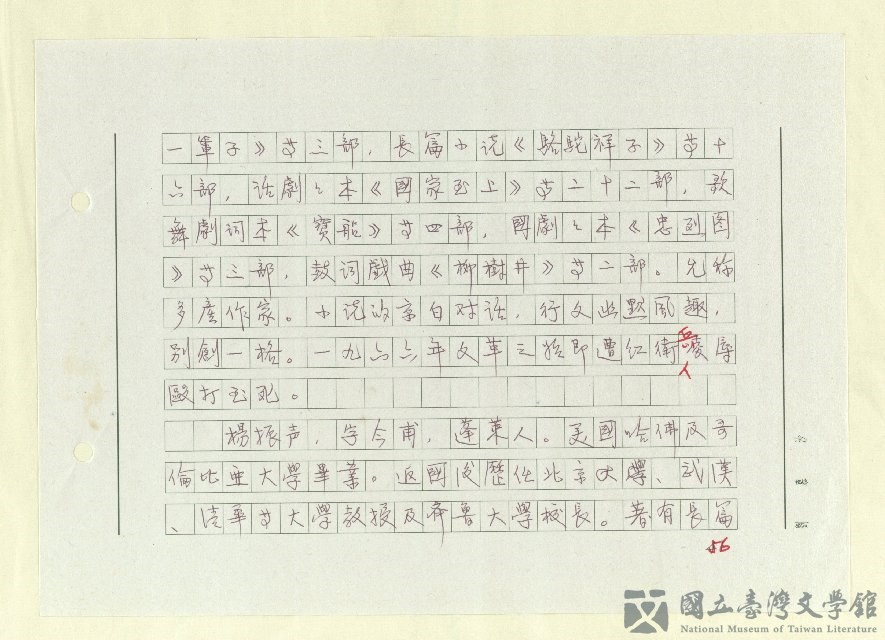 一輩子》等三部,長篇小说《駱駝祥子》等十
六部,话劇之本《國家至上》等二十二部,歌
舞劇词本《寶船》等四部,國劇之本《忠烈图
》等三部,鼓词戲曲《柳樹井》等二部。尤称
多產作家。小说的京白对话,行文幽默風趣,
别創一格。一九六六年文革之始即遭红衛兵凌辱
人
毆打至死。
楊振声,字今甫,蓬萊人。美國哈佛及哥
倫比亜大學畢業。返國後歷任北京大學、武漢
、清華等大學教授及齊魯大學校長。著有長篇
56
國立臺灣文學館
National Museum of Taiwan Literature